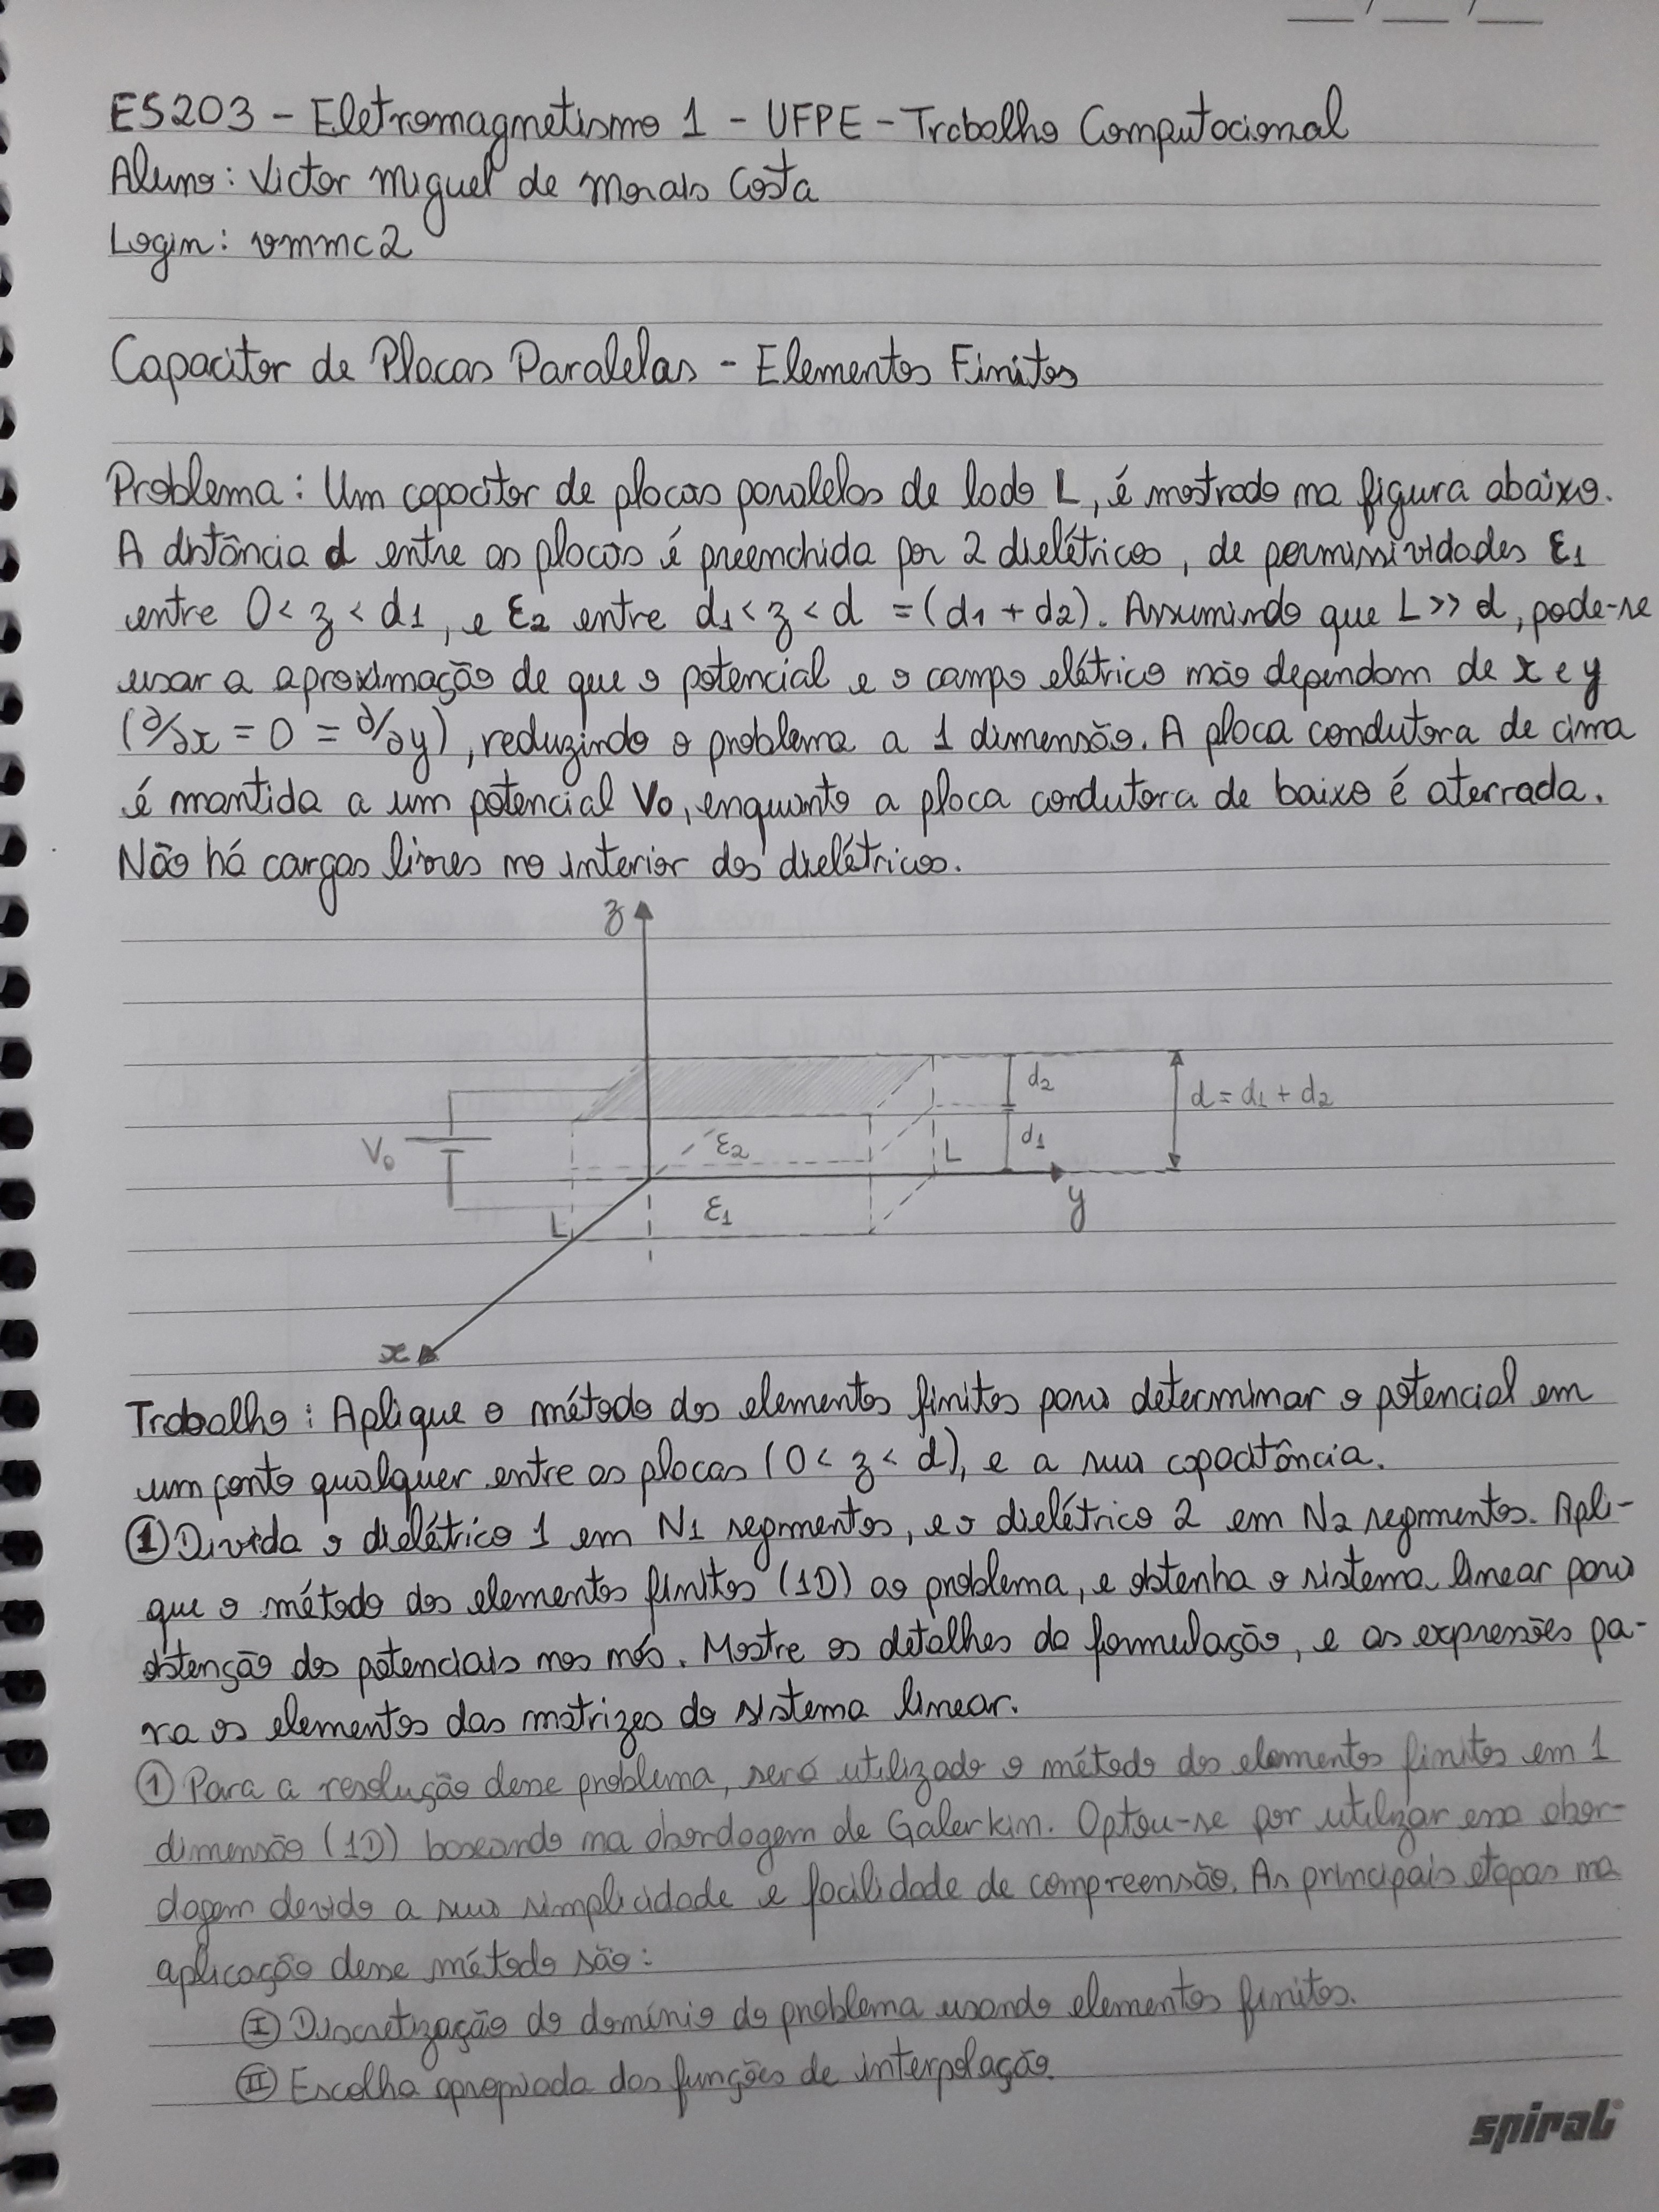 __/__/__
ES203 - Eletromagnetismo 1 - UFPE - Trabalho Computacional
Aluno: Victor Miguel de Morais Costa
Login: vmmc2
Capacitor de Placas Paralelas - Elementos Finitos
Problema: Um capacitor de placas paralelas de lado L, é mostrado na figura abaixo.
A distância d entre as placas é preenchida por 2 dielétricos, de permissividades ε1
entre 0 < z < d1, e ε2 entre d1 < z < d = (d1 + d2). Assumindo que L >> d, pode-se
usar a aproximação de que o potencial e o campo elétrico não dependam de x e y
(∂/∂x = 0 = ∂/∂y), reduzindo o problema a 1 dimensão. A placa condutora de cima
é mantida a um potencial V0, enquanto a placa condutora de baixo é aterrada.
Não há cargas livres no interior dos dielétricos.
z
d2
d = d1 + d2
V0
ε2
d1
L
y
ε1
L
x
Trabalho: Aplique o método dos elementos finitos para determinar o potencial em
um ponto qualquer entre as placas (0 < z < d), e a sua capacitância.
① Divida o dielétrico 1 em N1 segmentos, e o dielétrico 2 em N2 segmentos. Apli-
que o método dos elementos finitos (1D) ao problema, e obtenha o sistema linear para
obtenção dos potenciais nos nós. Mostre os detalhes da formulação, e as expressões pa-
ra os elementos das matrizes do sistema linear.
① Para a resolução desse problema, será utilizado o método dos elementos finitos em 1
dimensão (1D) baseando na abordagem de Galerkin. Optou-se por utilizar essa abor-
dagem devido a sua simplicidade e facilidade de compreensão. As principais etapas na
aplicação desse método são:
Ⓘ Discretização do domínio do problema usando elementos finitos.
(II) Escolha apropriada das funções de interpolação.
spiral